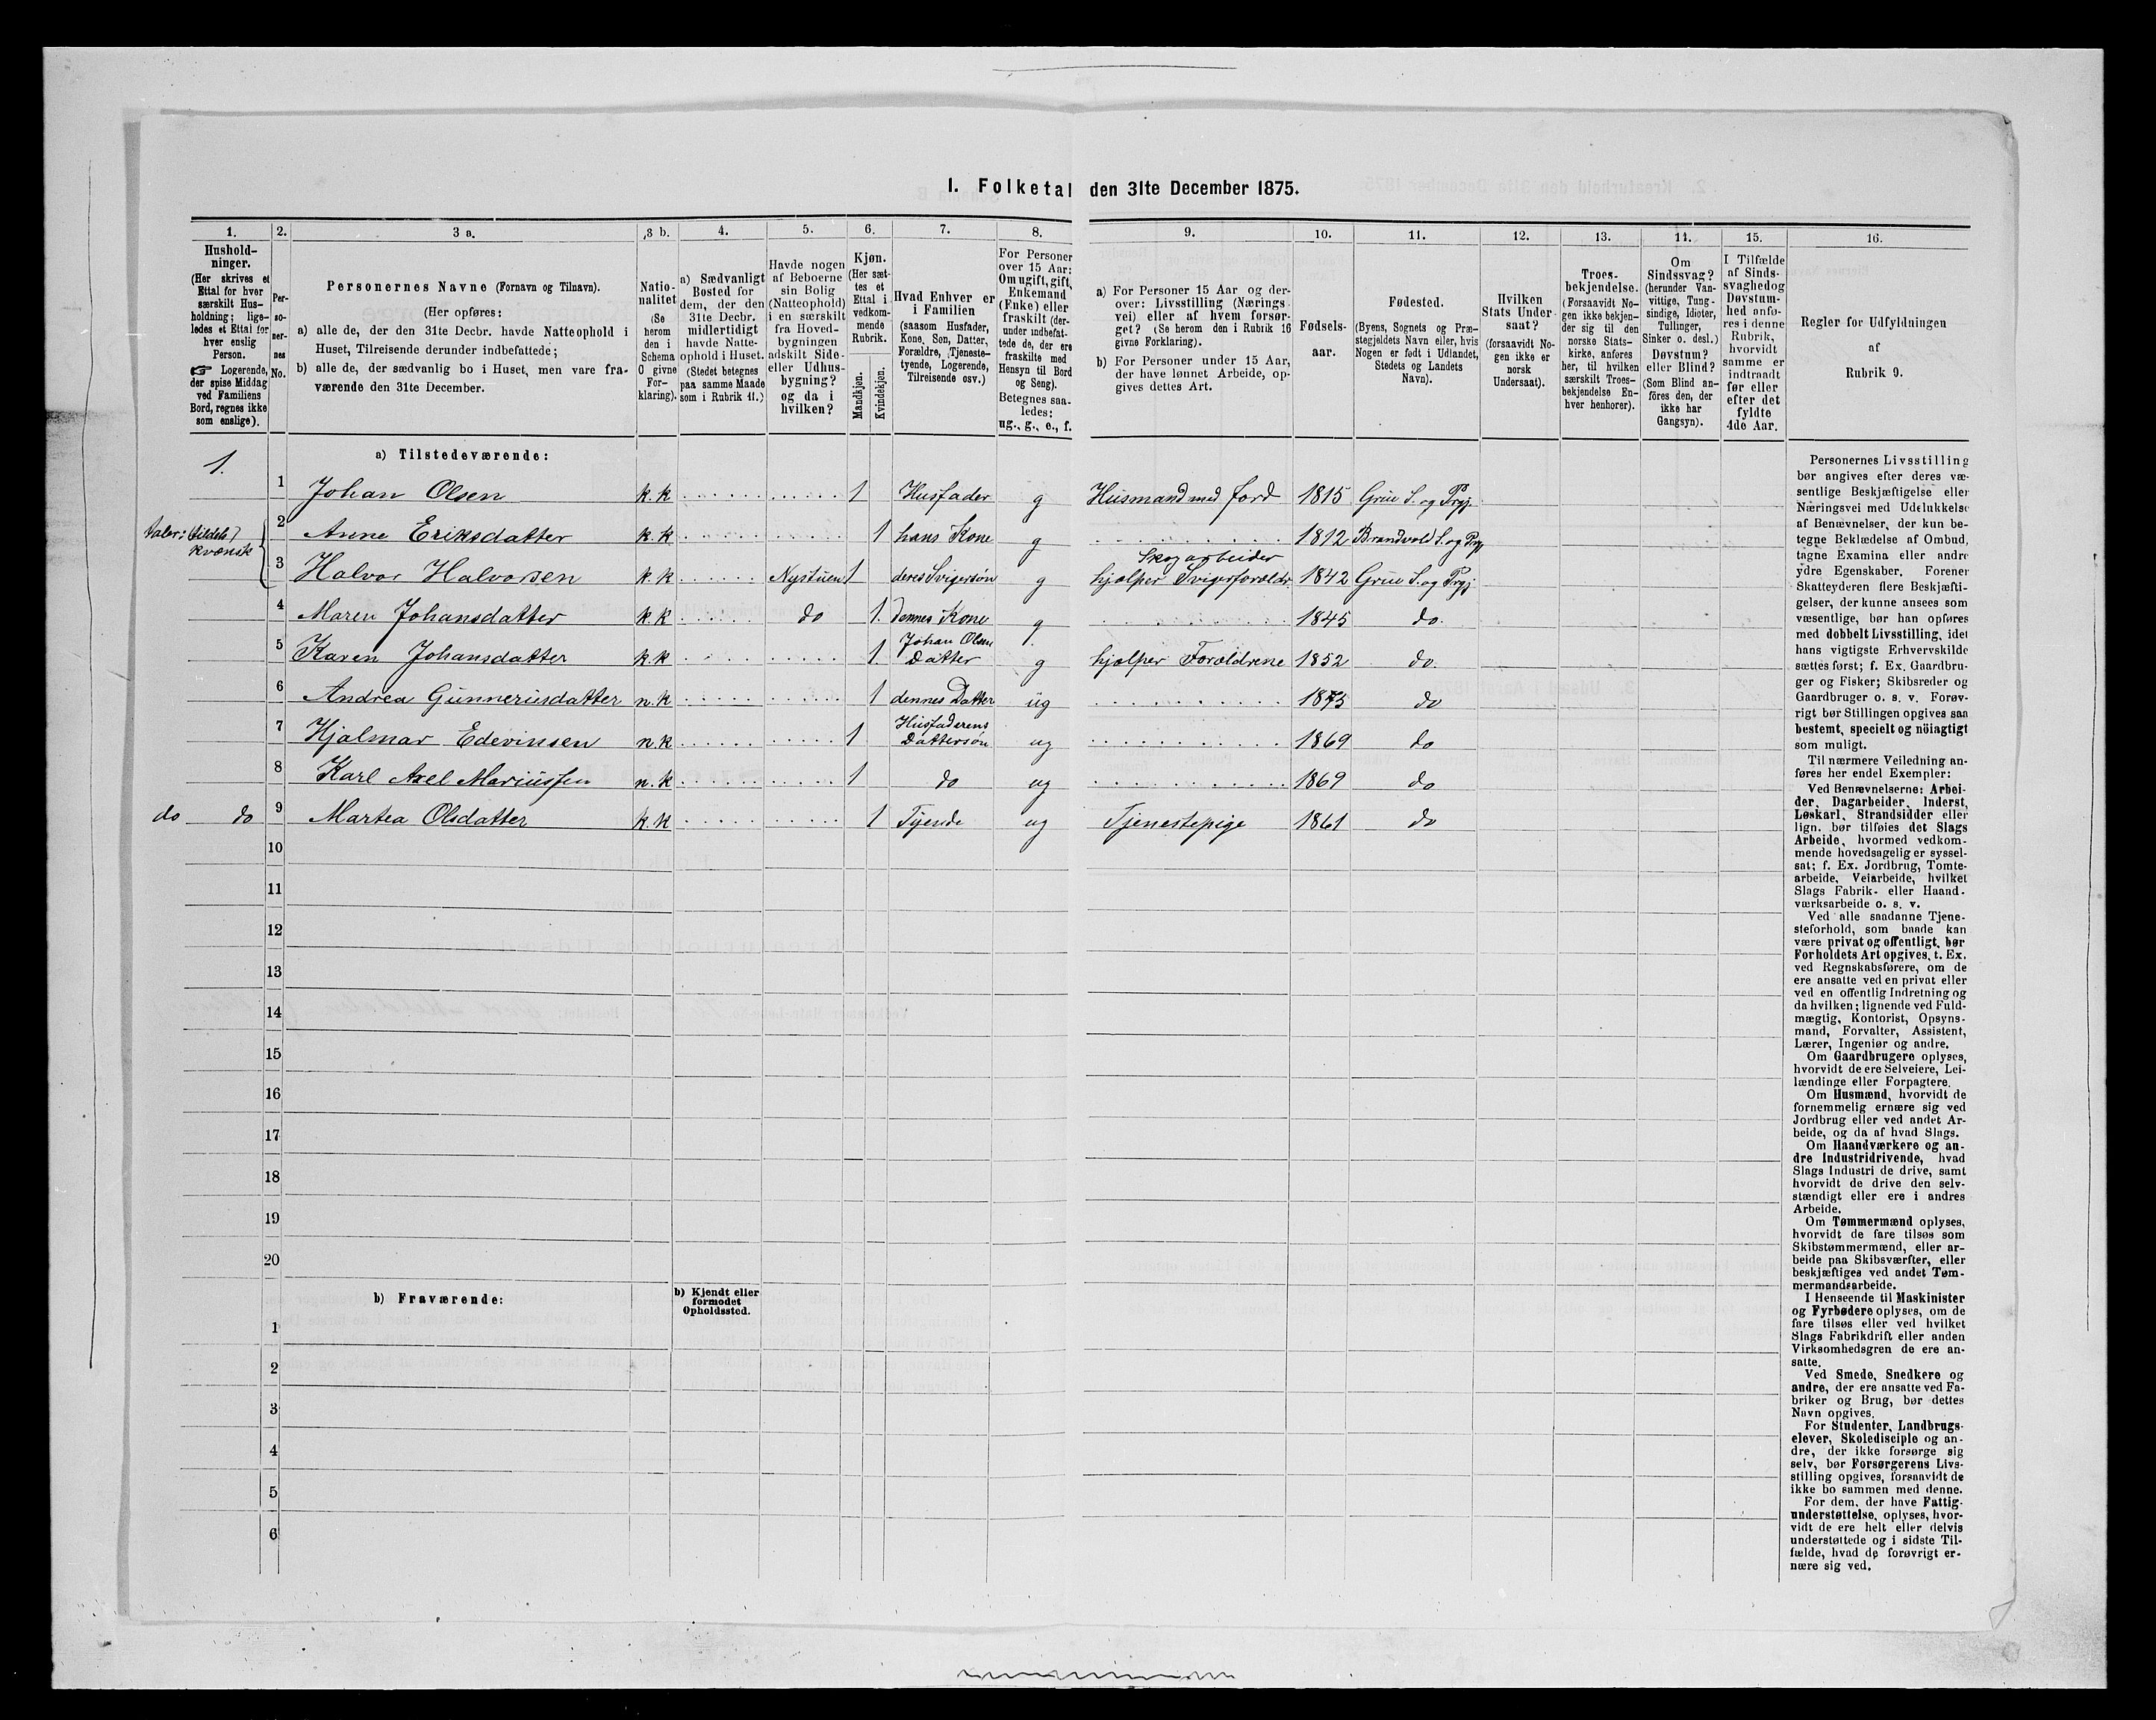 1. Folketal den 31te December 1875.
1. 2. 3 a. 3 b. 4. 5. 6. 7. 8. 9. 10. 11. 12. 13. 14. 15. 16.
Hushold-
ninger.
(Her skrives et
Ettal for hver
særskilt Hus-
holdning; lige-
ledes et Ettal for
hver enslig
Person.
☞ Logerende,
der spise Middag
ved Familiens
Bord, regnes ikke
som enslige).
Per-
so-
ner-
nes
No.
Personernes Navne (Fornavn og Tilnavn).
(Her opføres:
a) alle de, der den 31te Decbr. havde Natteophold i
Huset, Tilreisende derunder indbefattede;
b) alle de, der sædvanlig bo i Huset, men vare fra-
værende den 31te December.
Natio-
nalitet
(Se
herom
den i
Schema
O givne
For-
klaring).
a) Sædvanligt
Bosted for
dem, der den
31te Decbr.
midlertidigt
havde Natte-
ophold i Huset.
(Stedet betegnes
paa samme Maade
som i Rubrik 11.)
Havde nogen
af Beboerne
sin Bolig
(Natteophold)
i en særskilt
fra Hoved-
bygningen
adskilt Side-
eller Udhus-
bygning?
og da i
hvilken?
Kjøn.
(Her sæt-
tes et
Ettal i
vedkom-
mende
Rubrik.
Mandkjøn.
Kvindekjøn.
Hvad Enhver er
i Familien
(saasom Husfader,
Kone, Søn, Datter,
Forældre, Tjeneste-
tyende, Logerende,
Tilreisende osv.)
For Personer
over 15 Aar:
Om ugift, gift,
Enkemand
(Enke) eller
fraskilt (der-
under indbefat-
tede de, der ere
fraskilte med
Hensyn til Bord
og Seng).
Betegnes saa-
ledes:
ug., g., e., f.
a) For Personer 15 Aar og der-
over: Livsstilling (Nærings-
vei) eller af hvem forsør-
get? (Se herom den i Rubrik 16
givne Forklaring).
b) For Personer under 15 Aar,
der have lønnet Arbeide, op-
gives dettes Art.
Fødsels-
aar.
Fødested.
(Byens, Sognets og Præ-
stegjeldets Navn eller, hvis
Nogen er født i Udlandet,
Stedets og Landets
Navn).
Hvilken
Stats Under-
saat?
(forsaavidt No-
gen ikke er
norsk
Undersaat).
Troes-
bekjendelse.
(Forsaavidt No-
gen ikke bekjen-
der sig til den
norske Stats-
kirke, anføres
her, til hvilken
særskilt Troes-
bekjendelse En-
hver henhorer).
Om
Sindssvag?
(herunder Van-
vittige, Tung-
sindige, Idioter,
Tullinger,
Sinker o. desl.)
Døvstum?
eller Blind?
(Som Blind an-
föres den, der
ikke har
Gangsyn).
I Tilfælde
af Sinds-
svaghed og
Døvstum-
hed anfø-
res i denne
Rubrik,
hvorvidt
samme er
indtraadt
før eller
efter det
fyldte
4de Aar.
Regler for Udfyldningen
af
Rubrik 9.
a) Tilstedeværende:
1.
1 Johan Olsen k.k 1 Husfader g Husmand med Jord 1815 Grue S. og Prgj.
Taler: (tildels)
kvænsk
2 Anne Eriksdatter k.k 1 hans Kone g 1812 Brandvold S. og Prgj
3 Halvor Halvorsen k.k Nystuen 1 deres Svigersøn g Skogarbeider
hjælper Svigerforældr. 1842 Grue S. og Prgj
4 Maren Johansdatter k.k do 1. dennes Kone g 1845 do
5 Karen Johansdatter k.k 1. Johan Olsens
Datter g hjælper Forældrene 1852 do
6 Andrea Gunnerusdatter n.k 1 dennes Datter ug 1875 do
7 Hjalmar Edevinsen n.k 1 Husfaderens
Dattersøn ug 1869 do
8 Karl Axel Mariussen n.k 1 do ug 1869 do
do do 9 Martea Olsdatter k.k 1 Tyende ug Tjenestepige 1861 do
10
11
12
13
14
15
16
17
18
19
20
b) Fraværende:
b) Kjendt eller
formodet
Opholdssted.
1
2
3
4
5
6
Personernes Livsstilling
bør angives efter deres væ-
sentlige Beskjæftigelse eller
Næringsvei med Udelukkelse
af Benævnelser, der kun be-
tegne Beklædelse af Ombud,
tagne Examina eller andre
ydre Egenskaber. Forener
Skatteyderen flere Beskjæfti-
gelser, der kunne ansees som
væsentlige, bør han opføres
med dobbelt Livsstilling, idet
hans vigtigste Erhvervskilde
sættes først; f. Ex. Gaardbru-
ger og Fisker; Skibsreder og
Gaardbruger o. s. v. Forøv-
rigt bør Stillingen opgives saa
bestemt, specielt og nöiagtigt
som muligt.
Til nærmere Veiledning an-
føres her endel Exempler:
Ved Benævnelserne: Arbei-
der, Dagarbeider, Inderst,
Løskarl, Strandsidder eller
lign. bør tilføies det Slags
Arbeide, hvormed vedkom-
mende hovedsagelig er syssel-
sat; f. Ex. Jordbrug, Tomte-
arbeide, Veiarbeide, hvilket
Slags Fabrik- eller Haand-
værksarbeide o. s. v.
Ved alle saadanne Tjene-
steforhold, som baade kan
være privat og offentligt, bør
Forholdets Art opgives, t. Ex.
ved Regnskabsførere, om de
ere ansatte ved en privat eller
ved en offentlig Indretning og
da hvilken; lignende ved Fuld-
mægtig, Kontorist, Opsyns-
mand, Forvalter, Assistent,
Lærer, Ingeniør og andre.
Om Gaardbrugere oplyses,
hvorvidt de ere Selveiere, Lei-
lændinge eller Forpagtere.
Om Husmænd, hvorvidt de
fornemmelig ernære sig ved
Jordbrug eller ved andet Ar-
beide, og da af hvad Slags.
Om Haandværkere og an-
dre Industridrivende, hvad
Slags Industri de drive, samt
hvorvidt de drive den selv-
stændigt eller ere i andres
Arbeide.
Om Tømmermænd oplyses,
hvorvidt de fare tilsøs som
Skibstømmermænd, eller ar-
beide paa Skibsværfter, eller
beskjæftiges ved andet Tøm-
mermandsarbeide.
I Henseende til Maskinister
og Fyrbødere oplyses, om de
fare tilsøs eller ved hvilket
Slags Fabrikdrift eller anden
Virksomhedsgren de ere an-
satte.
Ved Smede, Snedkere og
andre, der ere ansatte ved Fa-
briker og Brug, bør dettes
Navn opgives.
For Studenter, Landbrugs-
elever, Skoledisciple og an-
dre, der ikke forsørge sig
selv, bør Forsørgerens Livs-
stilling opgives, forsaavidt de
ikke bo sammen med denne.
For dem, der have Fattig-
understøttelse, oplyses, hvor-
vidt de ere helt eller delvis
understøttede og i sidste Til-
fælde, hvad de forøvrigt er-
nære sig ved.